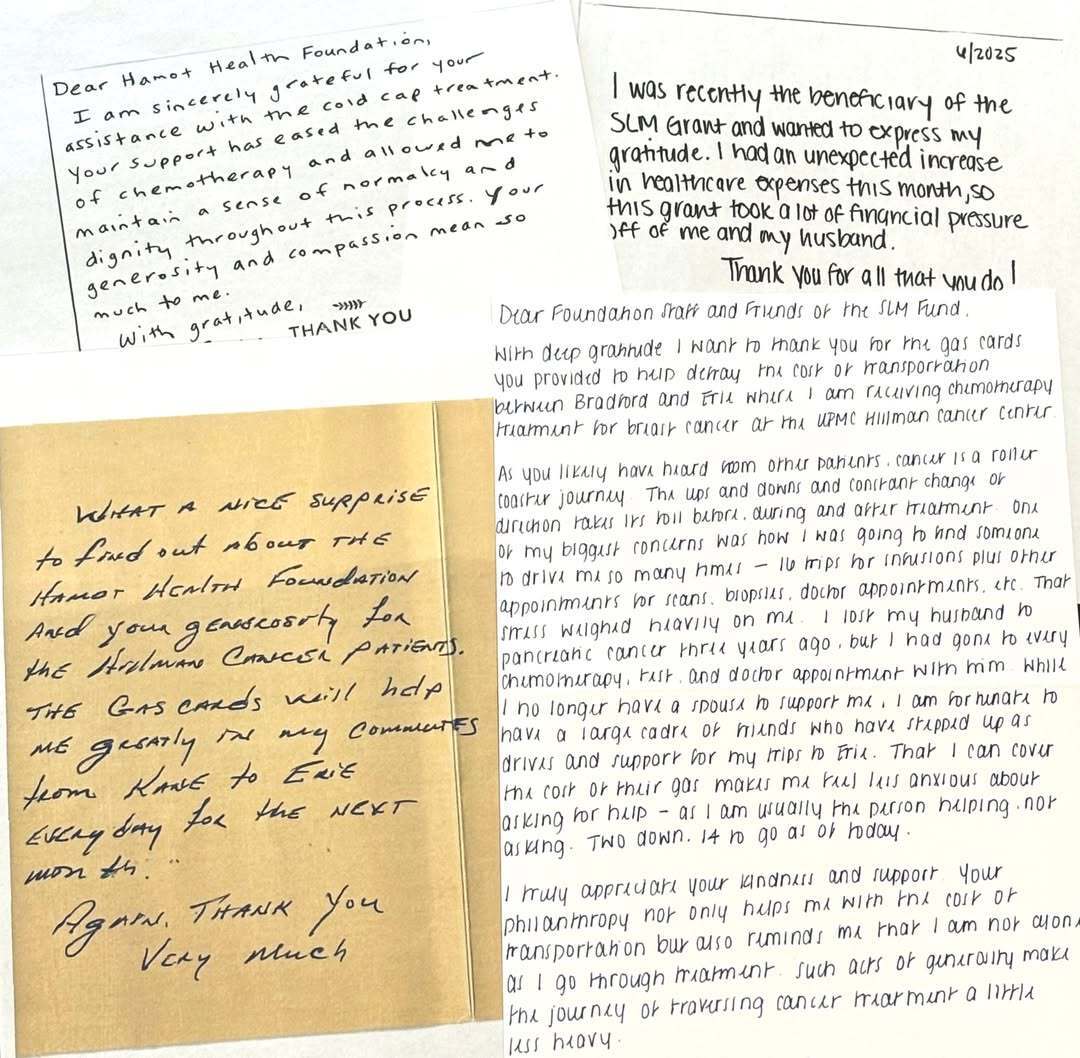 Dear Hamot Health Foundation,
I am sincerely grateful for your
assistance with the cold cap treatment.
Your support has eased the challenges
of chemotherapy and allowed me to
maintain a sense of normalcy and
dignity throughout this process. Your
generosity and compassion mean so
much to me.
With gratitude,
THANK YOU
4/2025
I was recently the beneficiary of the
SLM Grant and wanted to express my
gratitude. I had an unexpected increase
in healthcare expenses this month, so
this grant took a lot of financial pressure
off of me and my husband.
Thank you for all that you do!
WHAT A NICE SURPRISE
to find out about THE
HAMOT HEALTH FOUNDATION
And your generosity for
the Hillman CANCER PATIENTS.
THE GAS CARDS will help
ME greatly in my COMMUTES
from KANE to ERIE
EVERY day for the NEXT
month."
AGAIN, THANK YOU
VERY MUCH
Dear Foundation Staff and Friends of the SLM Fund,
With deep gratitude I want to thank you for the gas cards
you provided to help defray the cost of transportation
between Bradford and Erie where I am receiving chemotherapy
treatment for breast cancer at the UPMC Hillman Cancer Center.
As you likely have heard from other patients, cancer is a roller
coaster journey. The ups and downs and constant change of
direction takes its toll before, during and after treatment. One
of my biggest concerns was how I was going to find someone
to drive me so many times – 16 trips for infusions plus other
appointments for scans, biopsies, doctor appointments, etc. That
stress weighed heavily on me. I lost my husband to
pancreatic cancer three years ago, but I had gone to every
chemotherapy, test, and doctor appointment with him. While
I no longer have a spouse to support me, I am fortunate to
have a large cadre of friends who have stepped up as
drives and support for my trips to Erie. That I can cover
the cost of their gas makes me feel less anxious about
asking for help – as I am usually the person helping, not
asking. Two down, 14 to go as of today.
I truly appreciate your kindness and support. Your
philanthropy not only helps me with the cost of
transportation but also reminds me that I am not alone
as I go through treatment. Such acts of generosity make
the journey of traversing cancer treatment a little
less heavy.